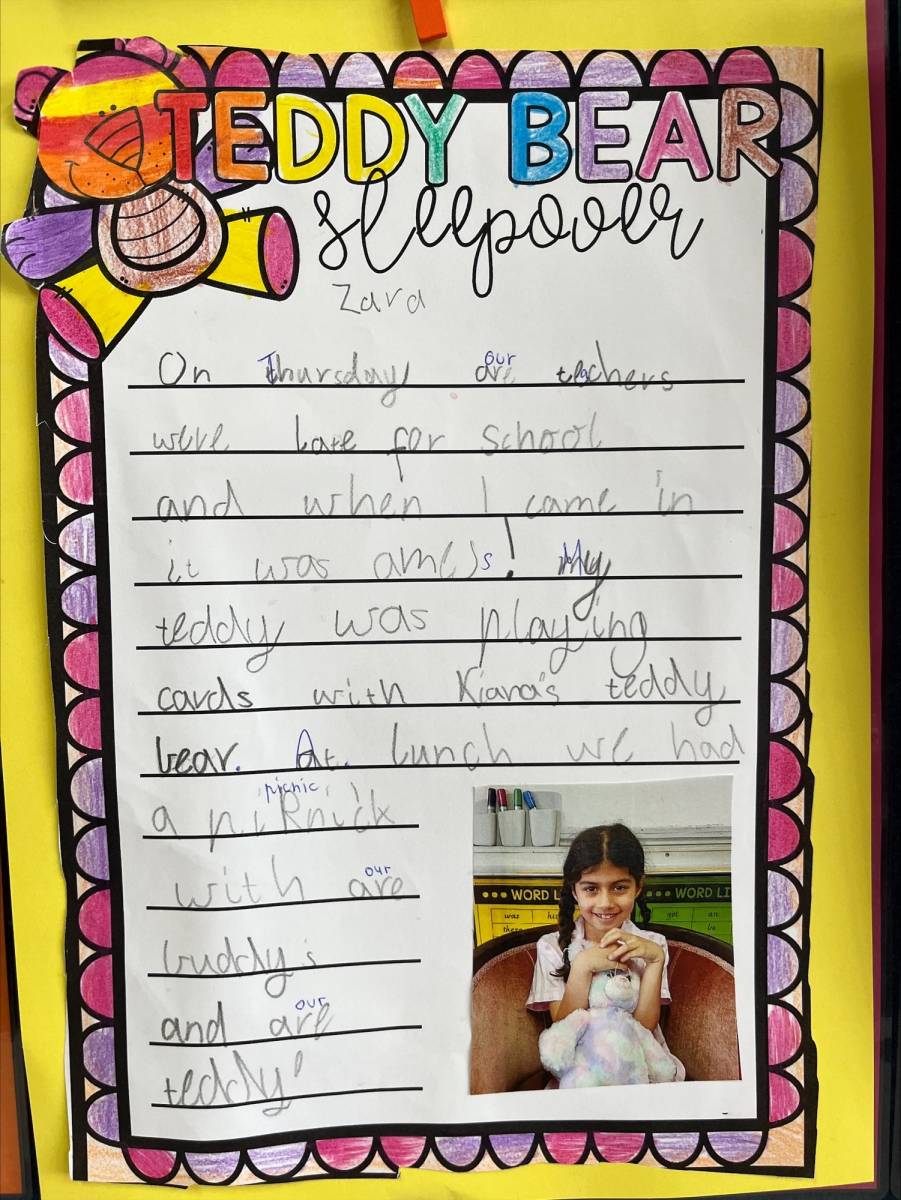 TEDDY BEAR
sleepover
Zara
On Thursday our are teachers
were late for school
and when I came in
it was am s! My
teddy was playing
cards with Kiana's teddy
bear. At lunch we had
picnic
a piknick
our
with are
buddys
our
and are
teddy'
WORD LI WORD LI
was his got an
there be